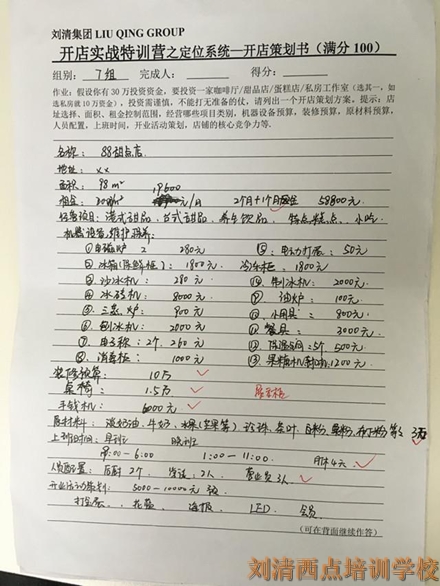 刘清集团 LIU QING GROUP
开店实战特训营之定位系统—开店策划书（满分100）
组别： 7组 完成人： 得分：
作业：假设你有30万投资资金，要投资一家咖啡厅/甜品店/蛋糕店/私房工作室（选其一，如
选私房就10万资金），投资需谨慎，不能打无准备的仗，请列出一个开店策划方案。提示：店
址选择、面积、租金控制范围，经营哪些项目类别，机器设备预算，装修预算，原材料预算，
人员配置，上班时间，开业活动策划，店铺的核心竞争力等.
名称： 88甜品店
地址： xx
面积： 98m²
租金： 19600 元/月 2个月+1个月 58800元
经营项目：港式甜品，台式甜品，养生饮品，特点糕点，小吃
机器设备
①电磁炉 2 280元
⑮：电水打蛋：50元
②冰箱（陈鲜柜）：1800元 冷冻柜：1800元
③沙冰机： 280元
⑭制冰机： 2000元
④冰砖机： 8000元
油炉： 100元
⑤三急炉： 900元
小用具： 800元
⑥刨冰机： 2000元
餐具： 3000元
⑦电子称：2个. 260元
5个 500元
⑧消毒柜： 1000元
⑬果糖机 1200元.
装修预算： 10万
桌椅： 1.5万
手钱机： 6000元
原材料：淡奶油，牛奶，水果（芒果等） 茶叶，等 3万
上班时间：早班 晚班
9:00-6:00 1:00-11:00. 月休4天
人员配置：后厨2个，2人，营业员3人
5000-10000元
海报， LED 会员
（可在背面继续作答）
刘清西点培训学校